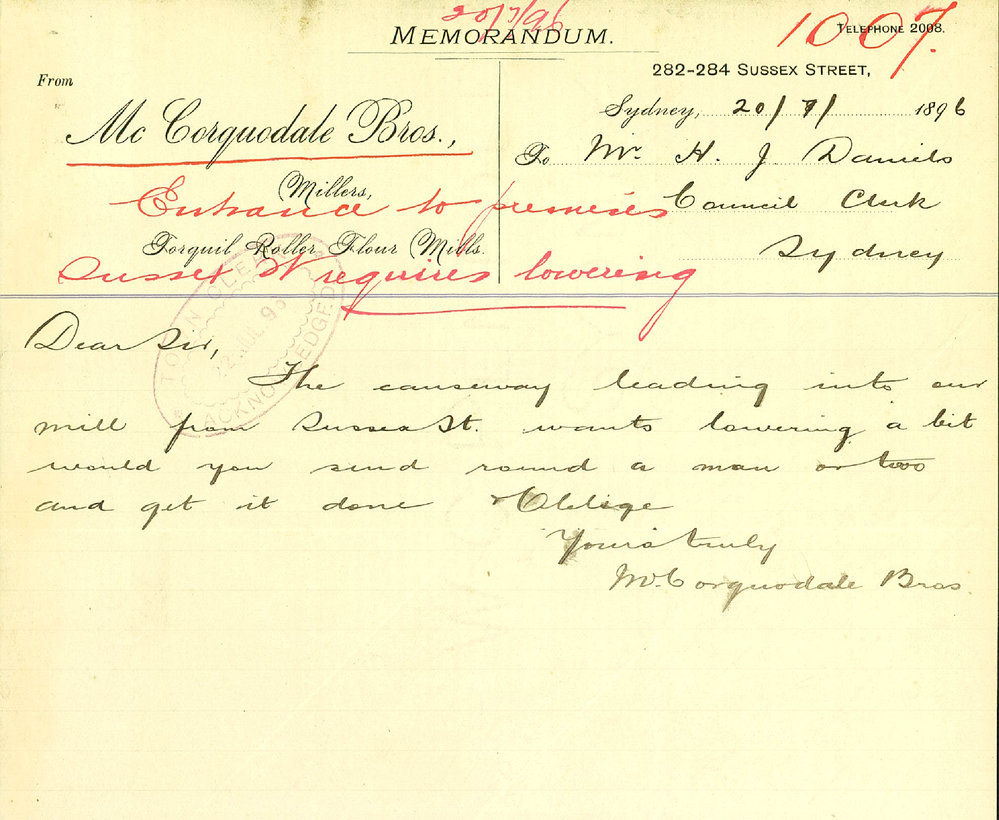 20/7/96
MEMORANDUM.
1007.
TELEPHONE 2008.
282-284 SUSSEX STREET,
From
Mc Corquodale Bros.,
Millers,
Torquil Roller Flour Mills.
Sydney, 20/7/ 1896
To Mr. H. J. Daniels
Council Clerk
Sydney
Entrance to premises
Sussex St requires lowering
TOWN CLERK
22 JUL 96
ACKNOWLEDGED
Dear Sir,
The causeway leading into our
mill from Sussex St. wants lowering a bit
would you send round a man or two
and get it done & Oblige
Yours truly
McCorquodale Bros.